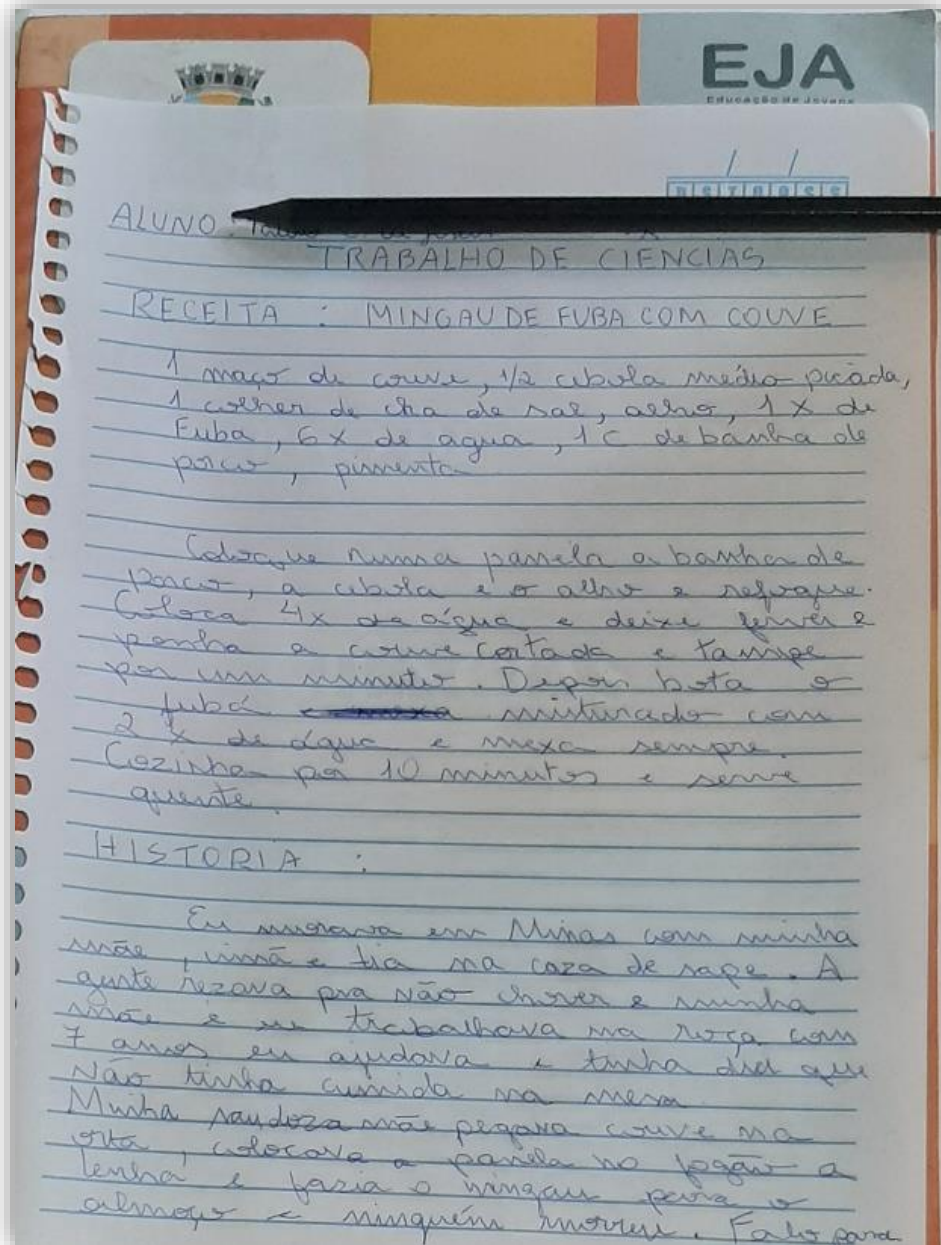 EJA
Educação de Jovens
D S T Q Q S S
ALUNO:
TRABALHO DE CIENCIAS
RECEITA : MINGAU DE FUBA COM COUVE
1 maço de couve, 1/2 cebola médio picada,
1 colher de cha de sal, alho, 1 x de
Fuba, 6x de agua, 1 c de banha de
porco, pimenta
Coloque numa panela a banha de
porco, a cebola e o alho e refogue.
Coloca 4x de água e deixe ferver e
ponha a couve cortada e tampe
por um minuto. Depois bota o
fubá misturado com
2 x de água e mexa sempre.
Cozinha por 10 minutos e serve
quente.
HISTORIA :
Eu morava em Minas com minha
mãe, irmã e tia na caza de sape. A
gente rezava pra não chover e minha
mãe e eu trabalhava na roça com
7 anos eu ajudava e tinha dia que
Não tinha cumida na mesa
Minha saudoza mãe pegava couve na
orta, colocava a panela no fogão a
lenha e fazia o mingau para o
almoço e ninguém morreu. Falo para